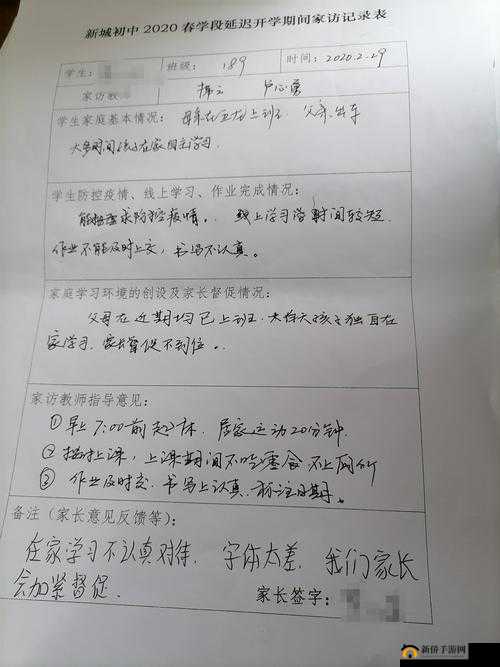 新城初中2020春学段延迟开学期间家访记录表
学生： 班级：189 时间：2020.2.29
家访教
学生家庭基本情况：母亲在 上班 父亲出车
大多时间孩子在家自主学习.
学生防控疫情、线上学习、作业完成情况：
能按要求防控疫情。线上学习学时间较短.
作业不能及时上交，书写不认真。
家庭学习环境的创设及家长督促情况：
父母在近期均已上班.大白天孩子独自在
家学习.家长督促不到位。
家访教师指导意见：
①早上7:00前起床.居家运动20分钟.
②按时上课，上课期间不吃零食 不上网
③作业及时交.书写上认真.标注日期。
备注（家长意见反馈等）：
在家学习不认真对待.字体太差.我们家长
会加紧督促.
家长签字：
新侨手游网